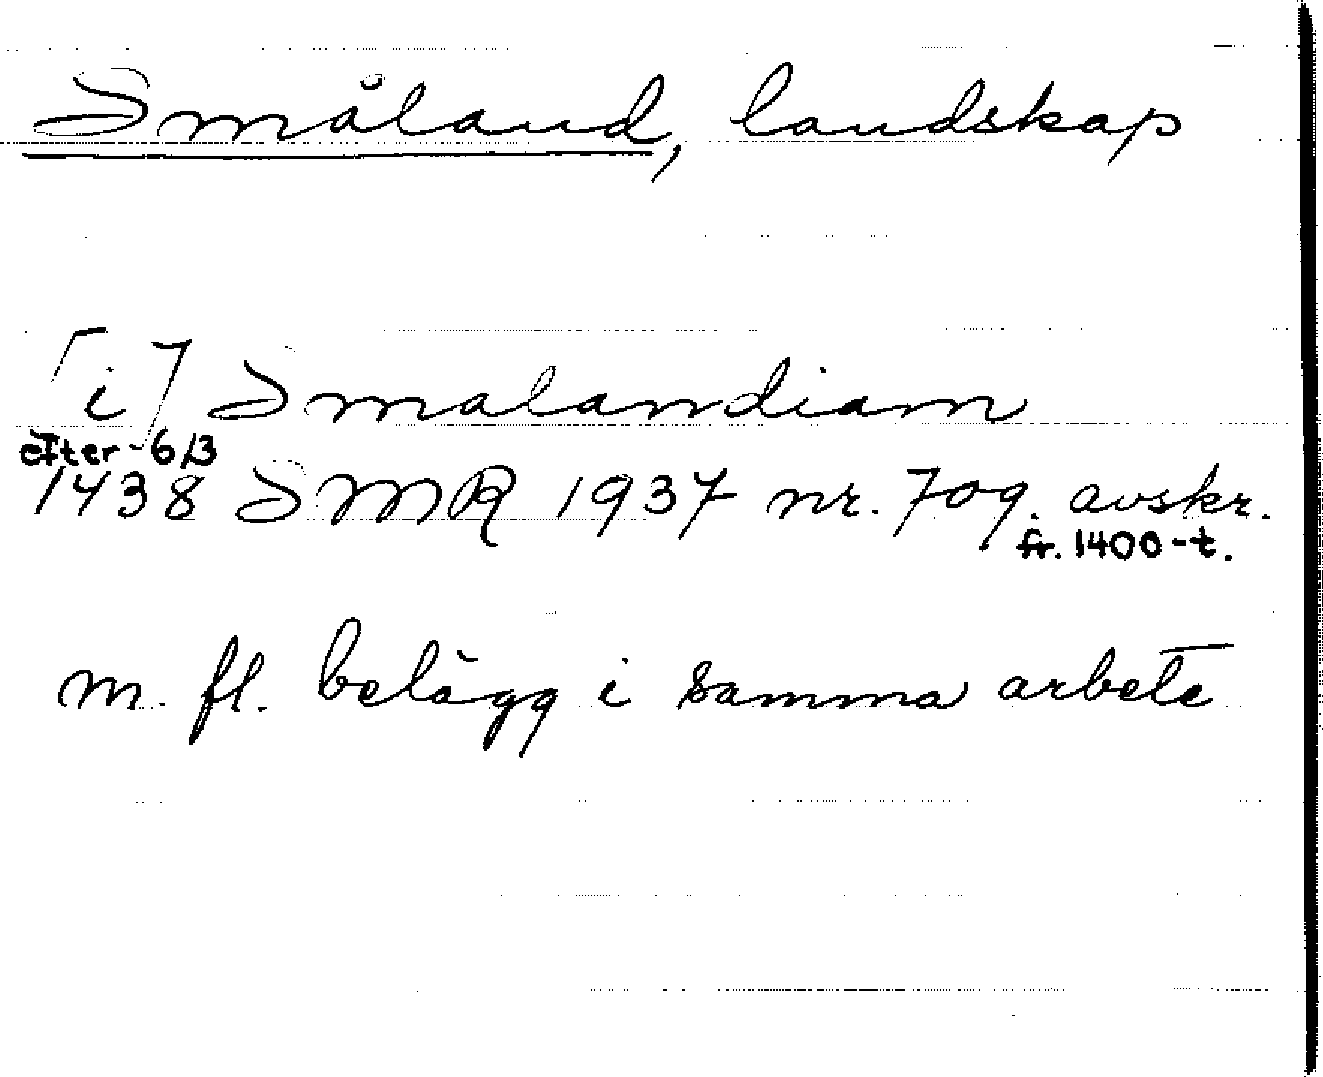 Småland, landskap
[i] Smalandiam
efter 6/3
1438 SMR 1937 nr. 709. avskr.
fr. 1400-t.
m. fl. belägg i samma arbete